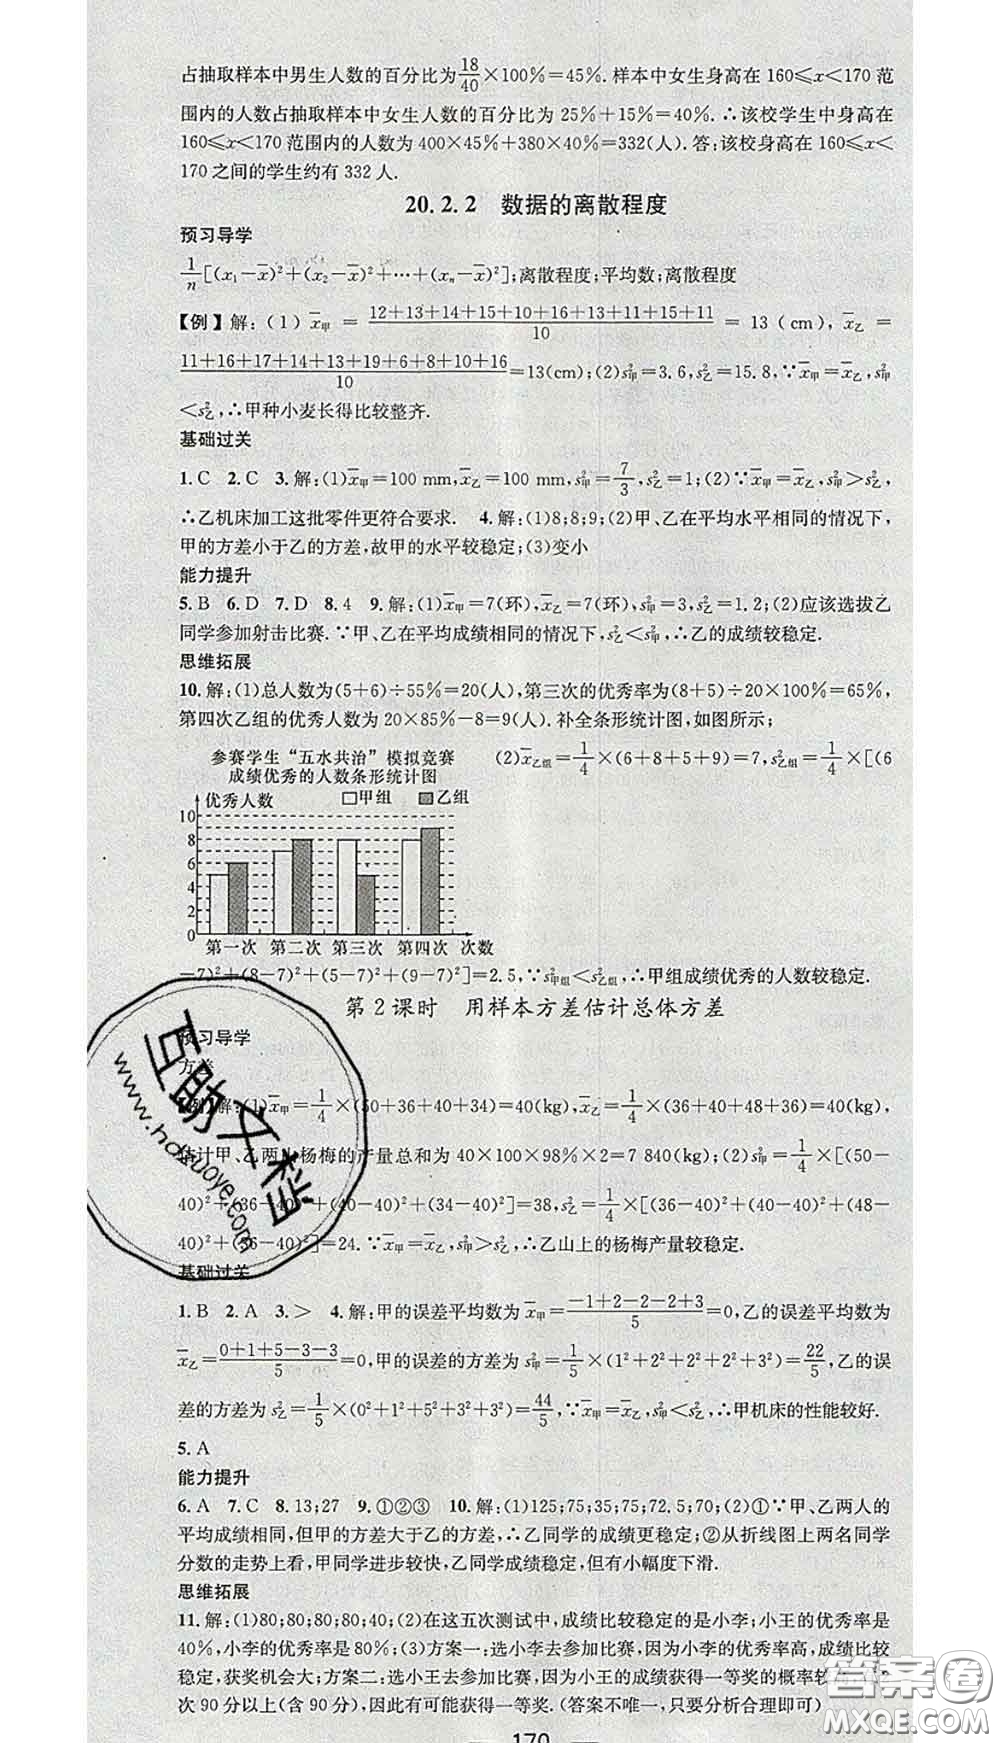 占抽取样本中男生人数的百分比为18/40×100%=45%. 样本中女生身高在160≤x<170范
围内的人数占抽取样本中女生人数的百分比为25%+15%=40%. ∴该校学生中身高在
160≤x<170范围内的人数为400×45%+380×40%=332(人). 答:该校身高在160≤x<
170之间的学生约有332人.
20.2.2 数据的离散程度
预习导学
1/n[(x₁-x̄)²+(x₂-x̄)²+…+(xₙ-x̄)²];离散程度;平均数;离散程度
【例】解:(1)x̄甲=(12+13+14+15+10+16+13+11+15+11)/10=13(cm),x̄乙=
(11+16+17+14+13+19+6+8+10+16)/10=13(cm);(2)s²甲=3.6,s²乙=15.8,∵x̄甲=x̄乙,s²甲
<s²乙,∴甲种小麦长得比较整齐.
基础过关
1.C 2.C 3.解:(1)x̄甲=100 mm,x̄乙=100 mm,s²甲=7/3,s²乙=1;(2)∵x̄甲=x̄乙,s²甲>s²乙,
∴乙机床加工这批零件更符合要求. 4.解:(1)8;8;9;(2)甲、乙在平均水平相同的情况下,
甲的方差小于乙的方差,故甲的水平较稳定;(3)变小
能力提升
5.B 6.D 7.D 8.4 9.解:(1)x̄甲=7(环),x̄乙=7(环),s²甲=3,s²乙=1.2;(2)应该选拔乙
同学参加射击比赛.∵甲、乙在平均成绩相同的情况下,s²乙<s²甲,∴乙的成绩较稳定.
思维拓展
10.解:(1)总人数为(5+6)÷55%=20(人),第三次的优秀率为(8+5)÷20×100%=65%,
第四次乙组的优秀人数为20×85%-8=9(人). 补全条形统计图,如图所示;
参赛学生“五水共治”模拟竞赛
成绩优秀的人数条形统计图
优秀人数 甲组 乙组
10
8
6
4
2
0
第一次 第二次 第三次 第四次 次数
(2)x̄乙组=1/4×(6+8+5+9)=7,s²乙组=1/4×[(6
-7)²+(8-7)²+(5-7)²+(9-7)²]=2.5,∵s²甲组<s²乙组,∴甲组成绩优秀的人数较稳定.
第2课时 用样本方差估计总体方差
预习导学
方差
【例】解:(1)x̄甲=1/4×(50+36+40+34)=40(kg),x̄乙=1/4×(36+40+48+36)=40(kg),
估计甲、乙两山杨梅的产量总和为40×100×98%×2=7 840(kg);(2)s²甲=1/4×[(50-
40)²+(36-40)²+(40-40)²+(34-40)²]=38,s²乙=1/4×[(36-40)²+(40-40)²+(48-
40)²+(36-40)²]=24.∵x̄甲=x̄乙,s²甲>s²乙,∴乙山上的杨梅产量较稳定.
基础过关
1.B 2.A 3.> 4.解:甲的误差平均数为x̄甲=(-1+2-2-2+3)/5=0,乙的误差平均数为
x̄乙=(0+1+5-3-3)/5=0,甲的误差的方差为s²甲=1/5×(1²+2²+2²+2²+3²)=22/5,乙的误
差的方差为s²乙=1/5×(0²+1²+5²+3²+3²)=44/5,∵x̄甲=x̄乙,s²甲<s²乙,∴甲机床的性能较好.
5.A
能力提升
6.A 7.C 8.13;27 9.①②③ 10.解:(1)125;75;35;75;72.5;70;(2)①∵甲、乙两人的
平均成绩相同,但甲的方差大于乙的方差,∴乙同学的成绩更稳定;②从折线图上两名同学
分数的走势上看,甲同学进步较快,乙同学成绩稳定,但有小幅度下滑.
思维拓展
11.解:(1)80;80;80;80;40;(2)在这五次测试中,成绩比较稳定的是小李;小王的优秀率是
40%,小李的优秀率是80%;(3)方案一:选小李去参加比赛,因为小李的优秀率高,成绩比较
稳定,获奖机会大;方案二:选小王去参加比赛,因为小王的成绩获得一等奖的概率较
次90分以上(含90分),因此有可能获得一等奖.(答案不唯一,只要分析合理即可)
170
互助文档
www.hdzuoye.com
答案圈
MXQE.COM